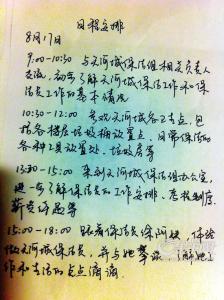 日程安排
8月17日
9:00-10:30 与天河城保洁组相关负责人
交流,初步了解天河城保洁工作和保
洁员工作的基本情况
10:30-12:00 参观天河城各工作点,包
括各楼层垃圾桶放置点、日常保洁的
各种工具放置处、垃圾房等
13:30-15:00 来到天河城保洁组办公室,
进一步了解保洁员的工作安排、考核制度、
薪资待遇等
15:00-18:00 跟着保洁员保阿姨,体验
做天河城保洁员,并与她交流,了解她工
作和生活的点点滴滴